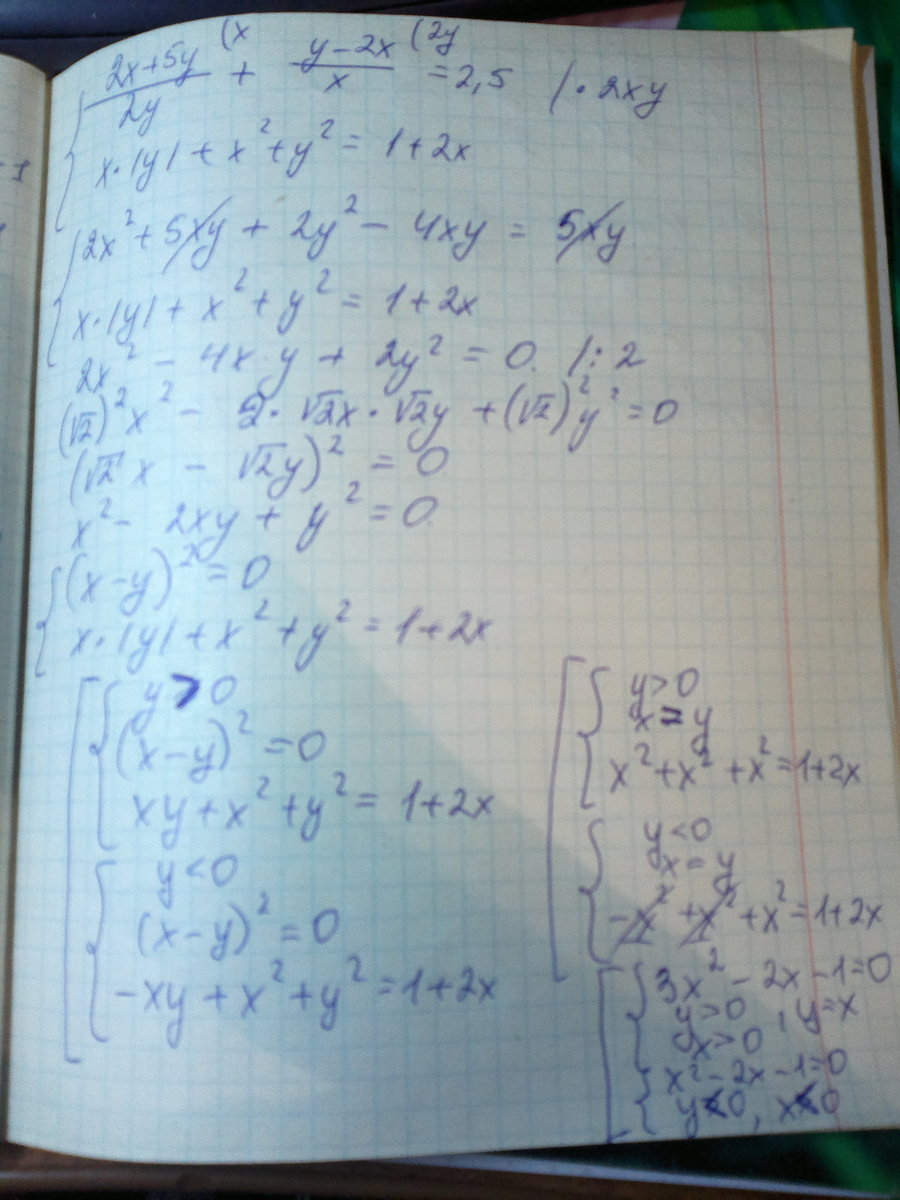 { (2x+5y)/2y (x + (y-2x)/x (2y = 2,5 /· 2xy
x·|y| + x² + y² = 1+2x
{ 2x² + 5xy + 2y² - 4xy = 5xy
x·|y| + x² + y² = 1+2x
2x² - 4x y + 2y² = 0. /: 2
(√2)²x² - 2·√2x·√2y + (√2)²y² = 0
(√2 x - √2y)² = 0
x² - 2xy + y² = 0.
{ (x-y)² = 0
x·|y| + x² + y² = 1+2x
[ { y > 0
(x-y)² = 0
xy + x² + y² = 1+2x
{ y < 0
(x-y)² = 0
-xy + x² + y² = 1+2x
[ { y > 0
x = y
x² + x² + x² = 1+2x
{ y < 0
x = y
-x² + x² + x² = 1+2x
[ { 3x² - 2x - 1 = 0
y > 0 , y = x
x > 0
{ x² - 2x - 1 = 0
y < 0, x < 0